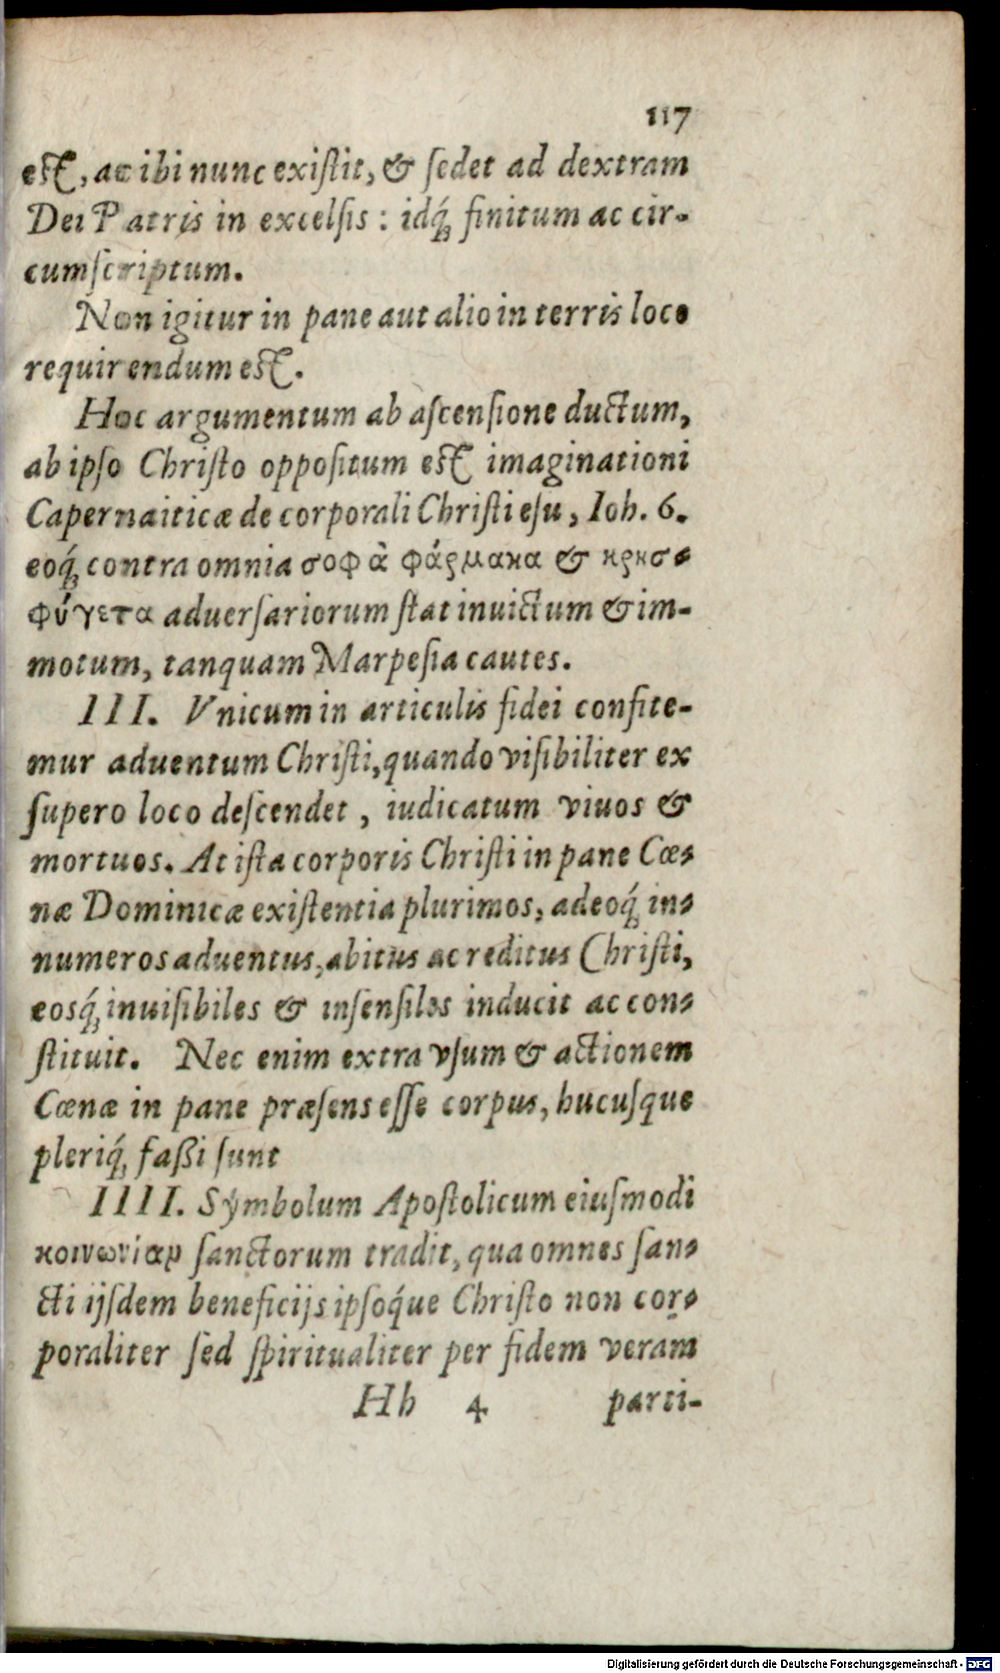 117
eſt, ac ibi nunc exiſtit, & ſedet ad dextram
Dei Patris in excelſis : idq́; finitum ac cir-
cumſcriptum.
Non igitur in pane aut alio in terris loco
requirendum eſt.
Hoc argumentum ab aſcenſione ductum,
ab ipſo Chriſto oppoſitum eſt imaginationi
Capernaiticæ de corporali Chriſti eſu, Ioh. 6.
eoq́; contra omnia σοφὰ φάρμακα & κρησ-
φύγετα aduerſariorum ſtat inuictum & im-
motum, tanquam Marpeſia cautes.
III. Vnicum in articulis fidei confite-
mur aduentum Chriſti, quando viſibiliter ex
ſupero loco deſcendet, iudicatum viuos &
mortuos. At iſta corporis Chriſti in pane Cœ-
næ Dominicæ exiſtentia plurimos, adeoq́; in-
numeros aduentus, abitus ac reditus Chriſti,
eosq́; inuiſibiles & inſenſiles inducit ac con-
ſtituit. Nec enim extra vſum & actionem
Cœnæ in pane præſens eſſe corpus, hucuſque
pleriq́; faßi ſunt
IIII. Sÿmbolum Apoſtolicum eiuſmodi
κοινωνίαν ſanctorum tradit, qua omnes ſan-
cti ijſdem beneficijs ipſoq́ue Chriſto non cor-
poraliter ſed ſpiritualiter per fidem veram
Hh 4 parti-
Digitalisierung gefördert durch die Deutsche Forschungsgemeinschaft - DFG